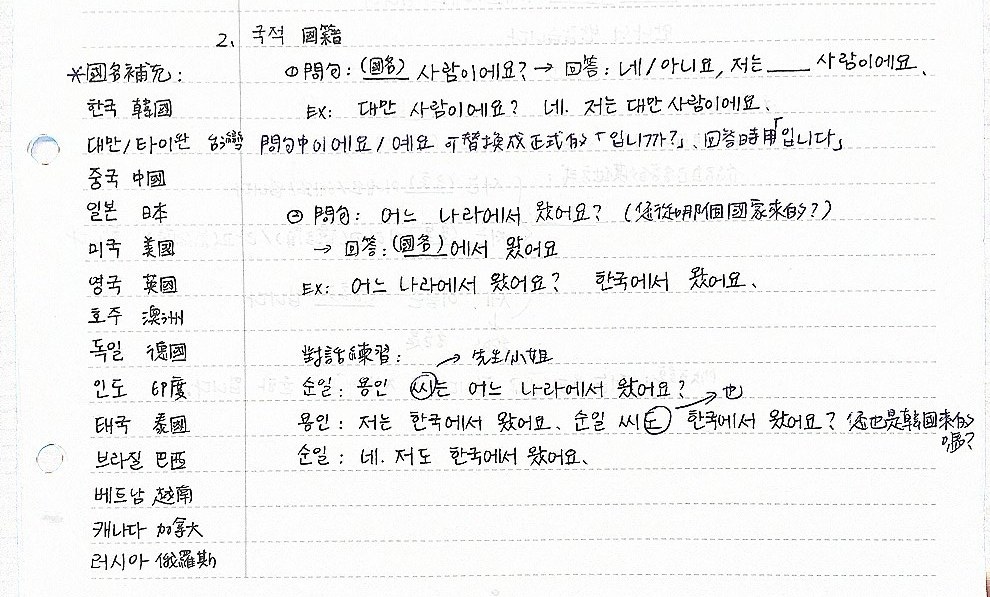 2. 국적 國籍
*國名補充:
한국 韓國
대만/타이완 台灣
중국 中國
일본 日本
미국 美國
영국 英國
호주 澳洲
독일 德國
인도 印度
태국 泰國
브라질 巴西
베트남 越南
캐나다 加拿大
러시아 俄羅斯
① 問句: (國名) 사람이에요? → 回答: 네/아니요, 저는 ____ 사람이에요.
EX: 대만 사람이에요? 네. 저는 대만 사람이에요.
問句中이에요/예요 可替換成正式的「입니까?」、回答時用「입니다」
② 問句: 어느 나라에서 왔어요? (您從哪個國家來的?)
→ 回答: (國名)에서 왔어요
EX: 어느 나라에서 왔어요? 한국에서 왔어요.
對話練習: → 先生/小姐
순일: 용인 씨는 어느 나라에서 왔어요? 也
용인: 저는 한국에서 왔어요. 순일 씨도 한국에서 왔어요? 您也是韓國來的
嗎?
순일: 네. 저도 한국에서 왔어요.